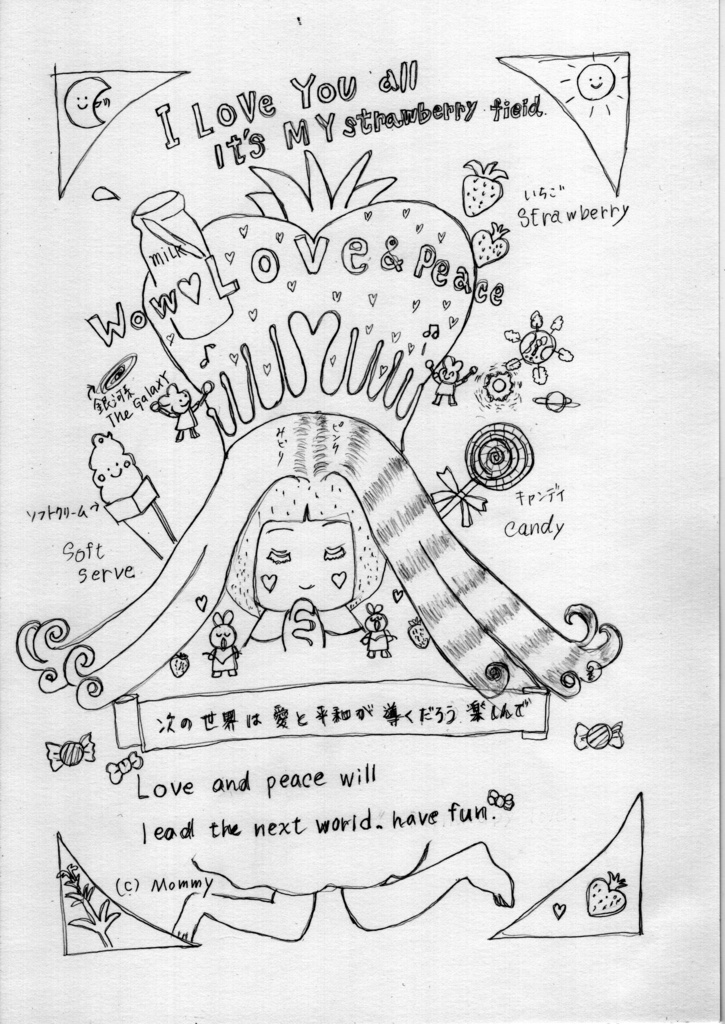 I Love You all
It's MY strawberry field.
いちご
Strawberry
MiLK
Wow♡Love&Peace
銀河系
The Galaxy
みどり
ピンク
ソフトクリーム→
Soft
Serve
キャンディ
Candy
次の世界は愛と平和が導くだろう楽しんで
Love and peace will
lead the next world. have fun.
(c) Mommy